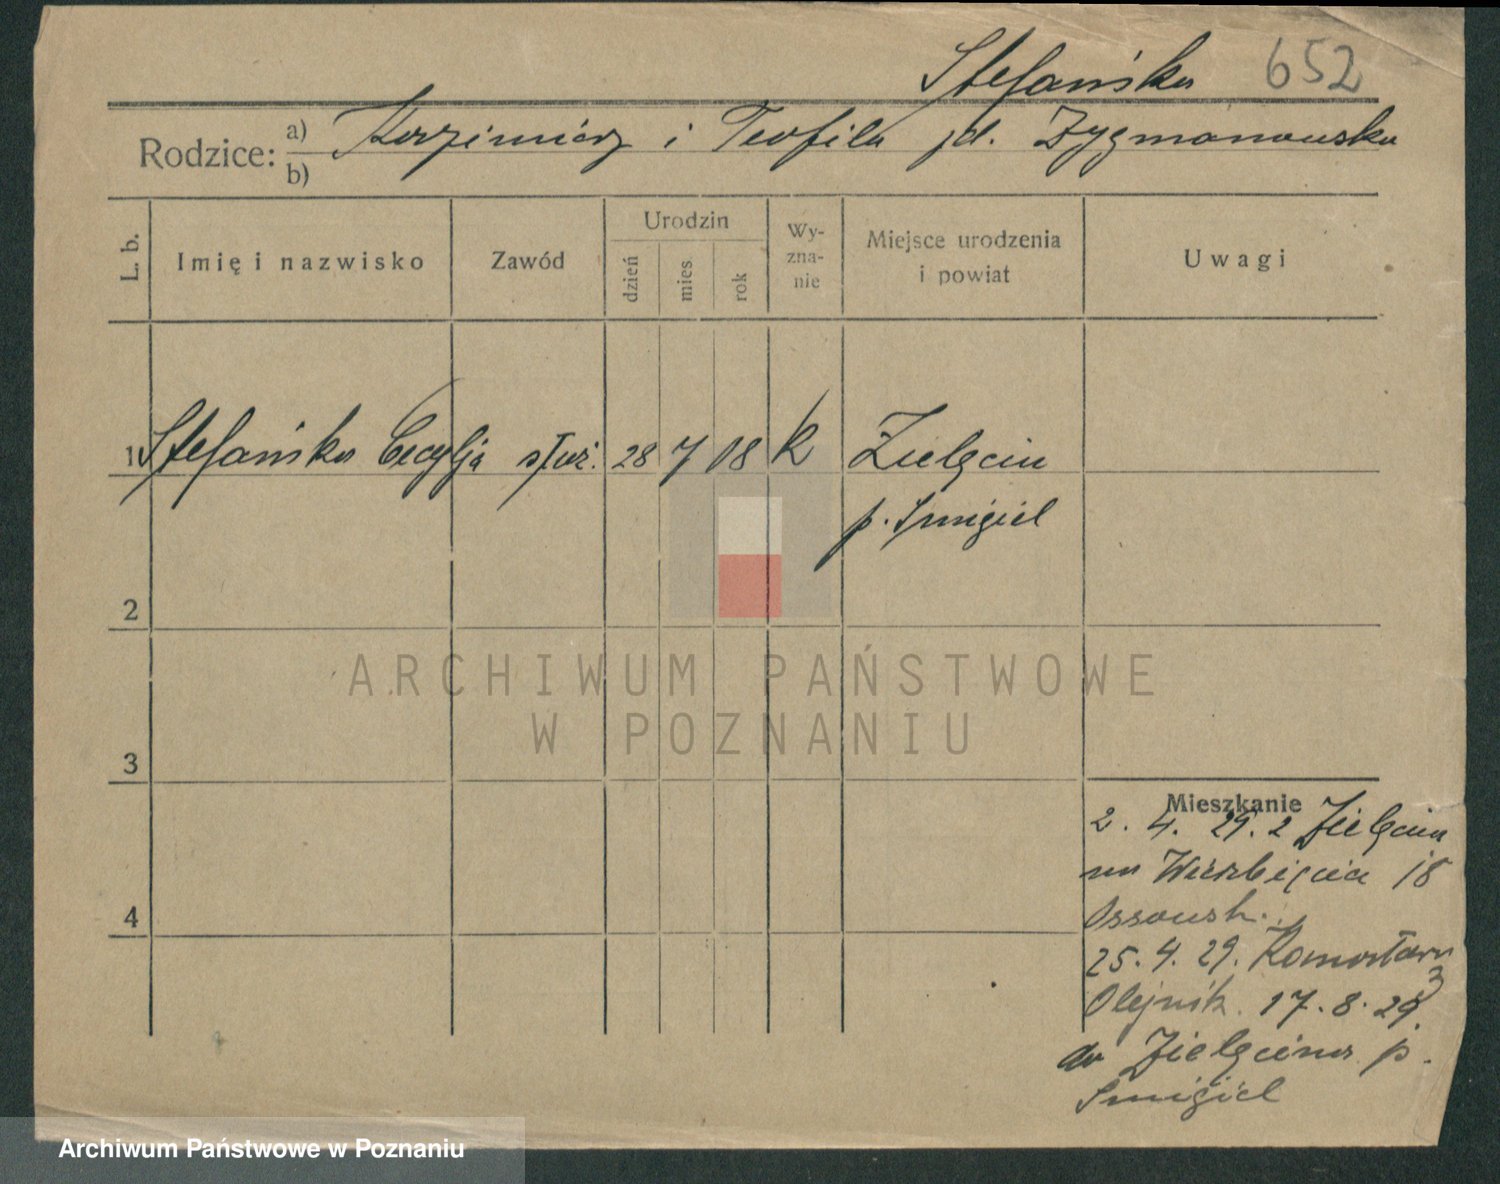 Stefańska 652
Rodzice: a) Kazimierz i Teofila jd. Zygmanowska
b)
L. b. Imię i nazwisko Zawód Urodzin dzień mies rok Wy-zna-nie Miejsce urodzenia i powiat Uwagi
1 Stefańska Cecylja służ. 28 7 08 k Zielęcin
p. Śmigiel
2
3
4
Mieszkanie
2. 4. 29. z Zielęcina
na Wierzbięcice 18
Ossowsk.
25. 4. 29. 3
Olejnik. 17. 8. 29.
do Zielęcina p.
Śmigiel
ARCHIWUM PAŃSTWOWE
W POZNANIU
Archiwum Państwowe w Poznaniu